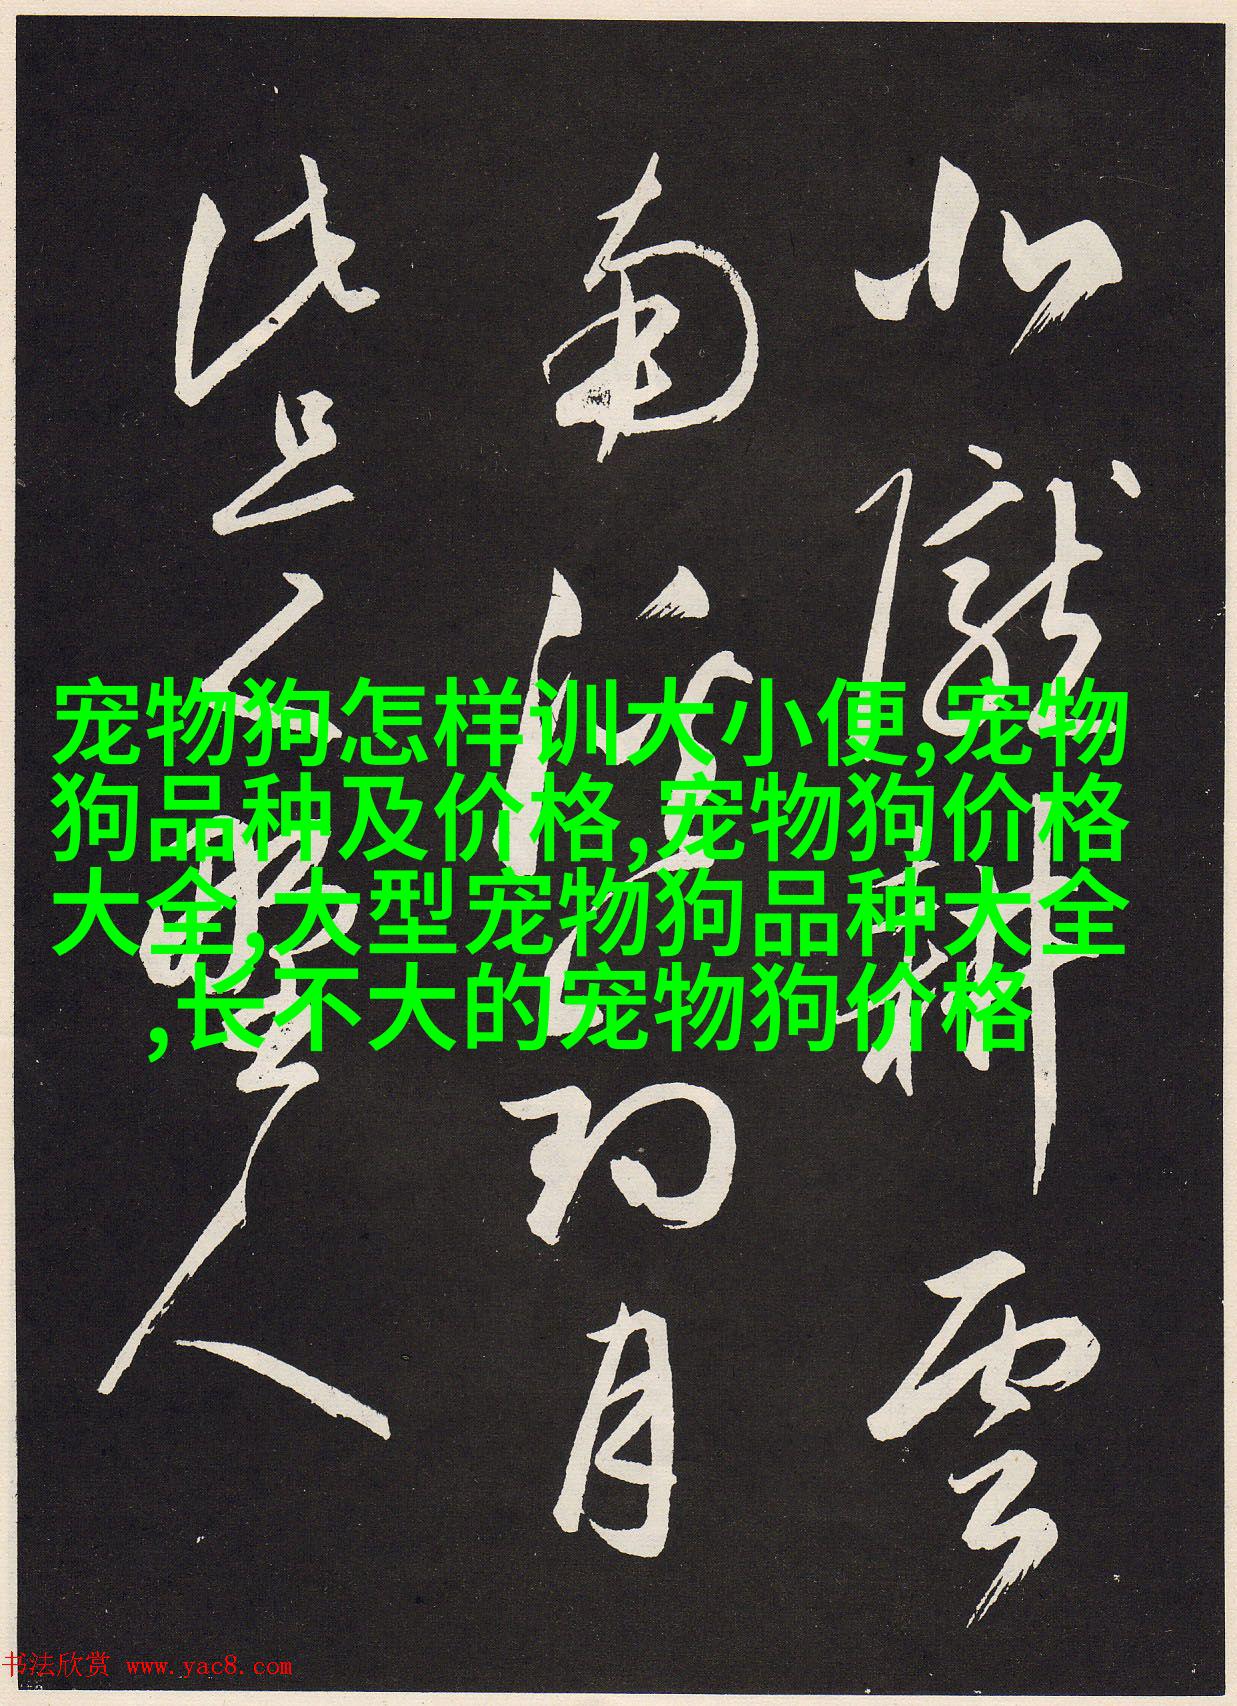 北隴耕雲
南溪釣月
此是野人
宠物狗怎样训大小便,宠物
狗品种及价格,宠物狗价格
大全,大型宠物狗品种大全
,长不大的宠物狗价格
书法欣赏 www.yac8.com